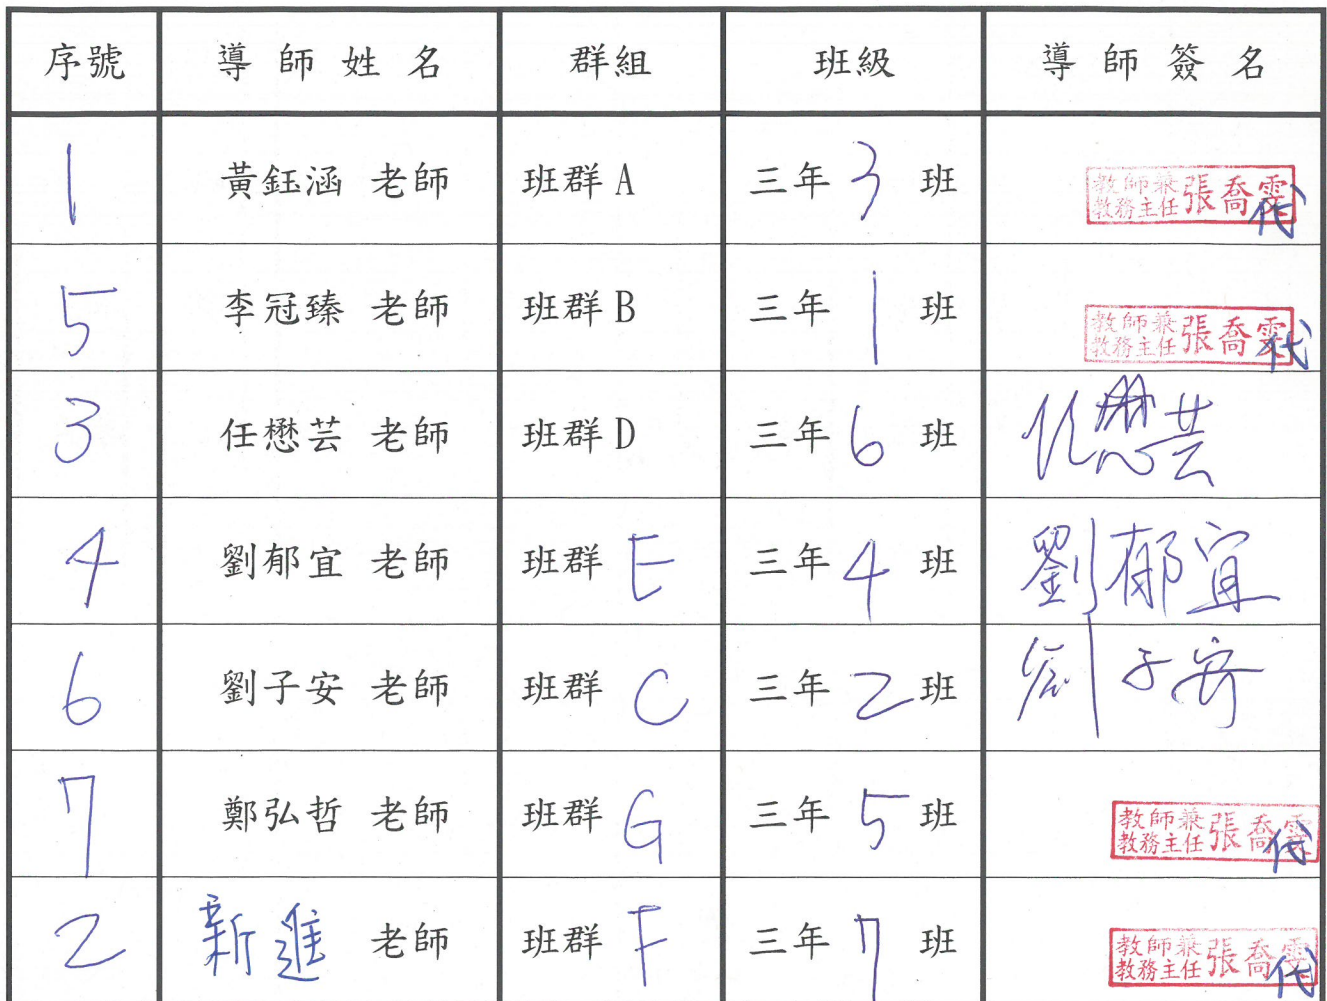 序號 導師姓名 群組 班級 導師簽名
1 黃鈺涵 老師 班群 A 三年 3 班 教師兼教務主任 張喬雯 代
5 李冠臻 老師 班群 B 三年 1 班 教師兼教務主任 張喬雯 代
3 任懋芸 老師 班群 D 三年 6 班 任懋芸
4 劉郁宜 老師 班群 E 三年 4 班 劉郁宜
6 劉子安 老師 班群 C 三年 2 班 劉子安
7 鄭弘哲 老師 班群 G 三年 5 班 教師兼教務主任 張喬雯 代
2 新進 老師 班群 F 三年 7 班 教師兼教務主任 張喬雯 代